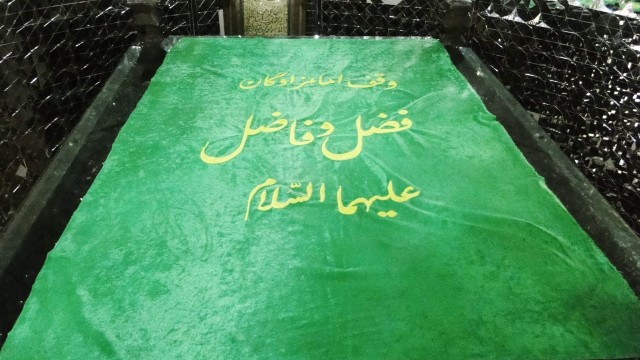 وقف امامزادگان
فضل و فاضل
علیهما السّلام